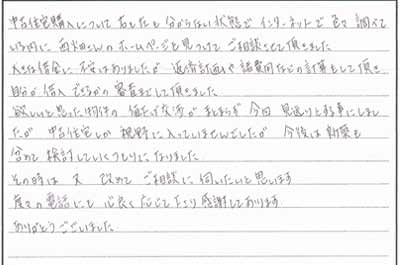 中古住宅購入について 右も左も分からない状態で インターネットで色々調べて
いる内に 西畑さんのホームページを見つけてご相談させて頂きました
大きな借金に不安はありましたが 返済計画や諸費用などの計算もして頂き
自分が借入できるかの審査までして頂きました
欲しいと思った物件の値下げ交渉がまとまらず 今回見送りと致す事にしまし
たが 中古住宅しか視野に入っていませんでしたが 今後は新築も
含めて検討していくつもりになりました
その時は又 改めてご相談に伺いたいと思います
度々の電話にも 心良く応じて下さり感謝しております
ありがとうございました